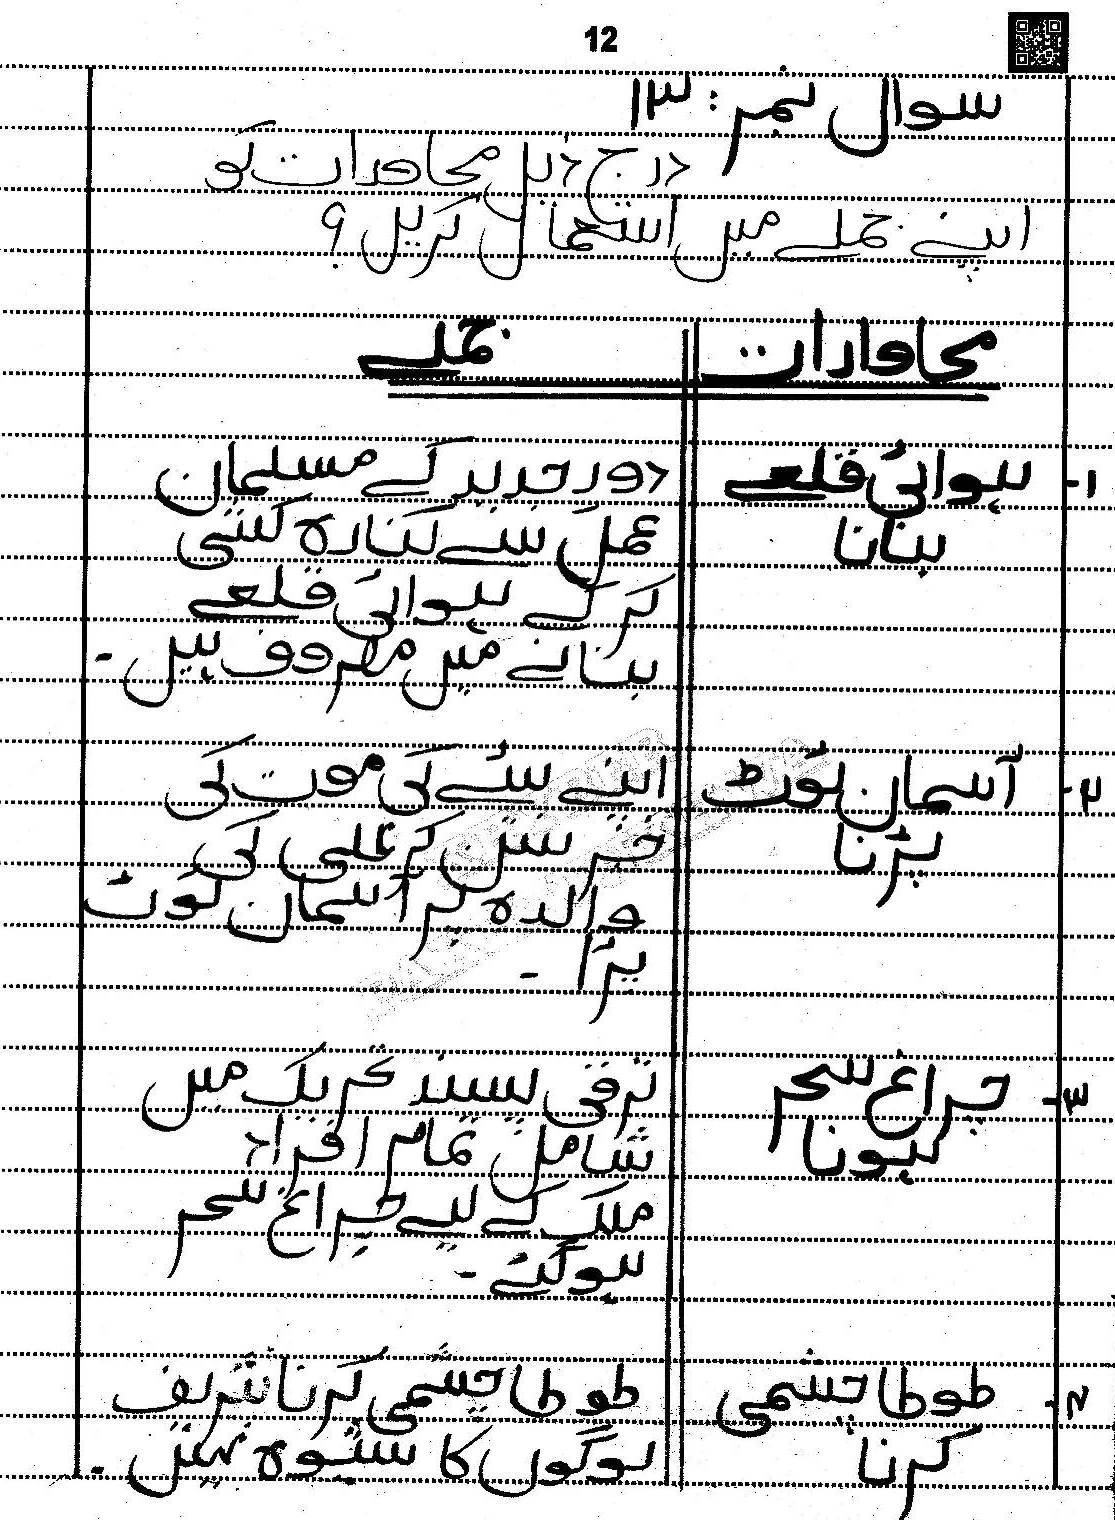 12
سوال نمبر: ۱۳
درج ذیل محاورات کو
اپنے جملے میں استعمال کریں؟
محاورات جملے
۱- ہوائی قلعے دور جدید کے مسلمان
بنانا عمل سے کنارہ کشی
کر کے ہوائی قلعے
بنانے میں مصروف ہیں۔
۲- آسمان ٹوٹ اپنے بیٹے کی موت کی
پڑنا خبر سن کر علی کی
والدہ پر آسمان ٹوٹ
پڑا۔
۳- چراغ سحر ترقی پسند تحریک میں
ہونا شامل تمام افراد
ملک کے لیے چراغ سحر
ہوگئے۔
۴- طوطا چشمی طوطا چشمی کرنا شریف
کرنا لوگوں کا شیوہ نہیں۔